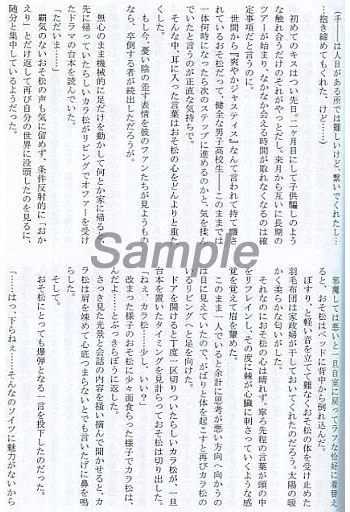 (手――は人目がある所では難しいけど、繋いでくれたし…
…抱き締めてもくれた。けど……)
初めてのキスはつい先日。二ヶ月目にして子供騙しのよう
な触れ合うだけのそれがやっとだし、来月から互いに長期の
ツアーが始まり、なかなか会える時間が取れなくなるのは確
定事項だと言うのに。
世間から『爽やかジャスティス』なんて言われて持て囃さ
れているおそ松だって、健全な男子高校生――このままでは
一体何時になったら次のステップに進めるのかと、気を揉ん
でいたと言うのが正直な気持ちで。
そんな中、耳に入った言葉はおそ松の心をどんよりと重た
くした。
もし今、憂い陰の差す表情を彼のファンたちが見ようもの
なら、卒倒する者が続出しただろうが。
無心のまま機械的に足だけを動かして何とか家に帰ると、
先に帰っていたらしいカラ松がリビングでオファーを受け
たドラマの台本を読んでいた。
「ただいま……」
覇気のないおそ松の声も気に留めず、条件反射的に「おか
えり」とだけ返して再び自分の世界に没頭したのを見るに、
随分と集中しているようだった。
邪魔しては悪いと一旦自室に戻ってラフな恰好に着替え
ると、おそ松はベッドに背中から倒れ込んだ。
ぼすり、と軽い音を立てて難なくおそ松の体を受け止めた
羽毛布団は家政婦が干しておいてくれたのだろう。太陽の暖
かく柔らかな匂いがした。
それなのにおそ松の心は晴れず、寧ろ先程の言葉が頭の中
をリフレインし、その度に棘が心臓に刺さっていくような感
覚を覚えて眉を顰めた。
このまま一人でいると余計に思考が悪い方向へ向かうの
は目に見えていたので、がばりと体を起こすと再びカラ松の
いるリビングへと足を向けた。
ドアを開けると丁度一区切りついたらしいカラ松が、一旦
台本を置いたタイミングを見計らっておそ松は切り出した。
「ねぇ、カラ松……少し、いい?」
改まった様子のおそ松に少々面食らった様子でカラ松は、
んだよ……とぶっきらぼうに返した。
さっき見た光景と会話の内容を掻い摘んで聞かせると、カ
ラ松は眉を歪めて心底つまらないとでも言いたげに鼻を鳴
らした。
そして。
おそ松にとっても爆弾となる一言を投下したのだった。
「……はっ、下らねぇ……そんなのソイツに魅力がないから
Sample